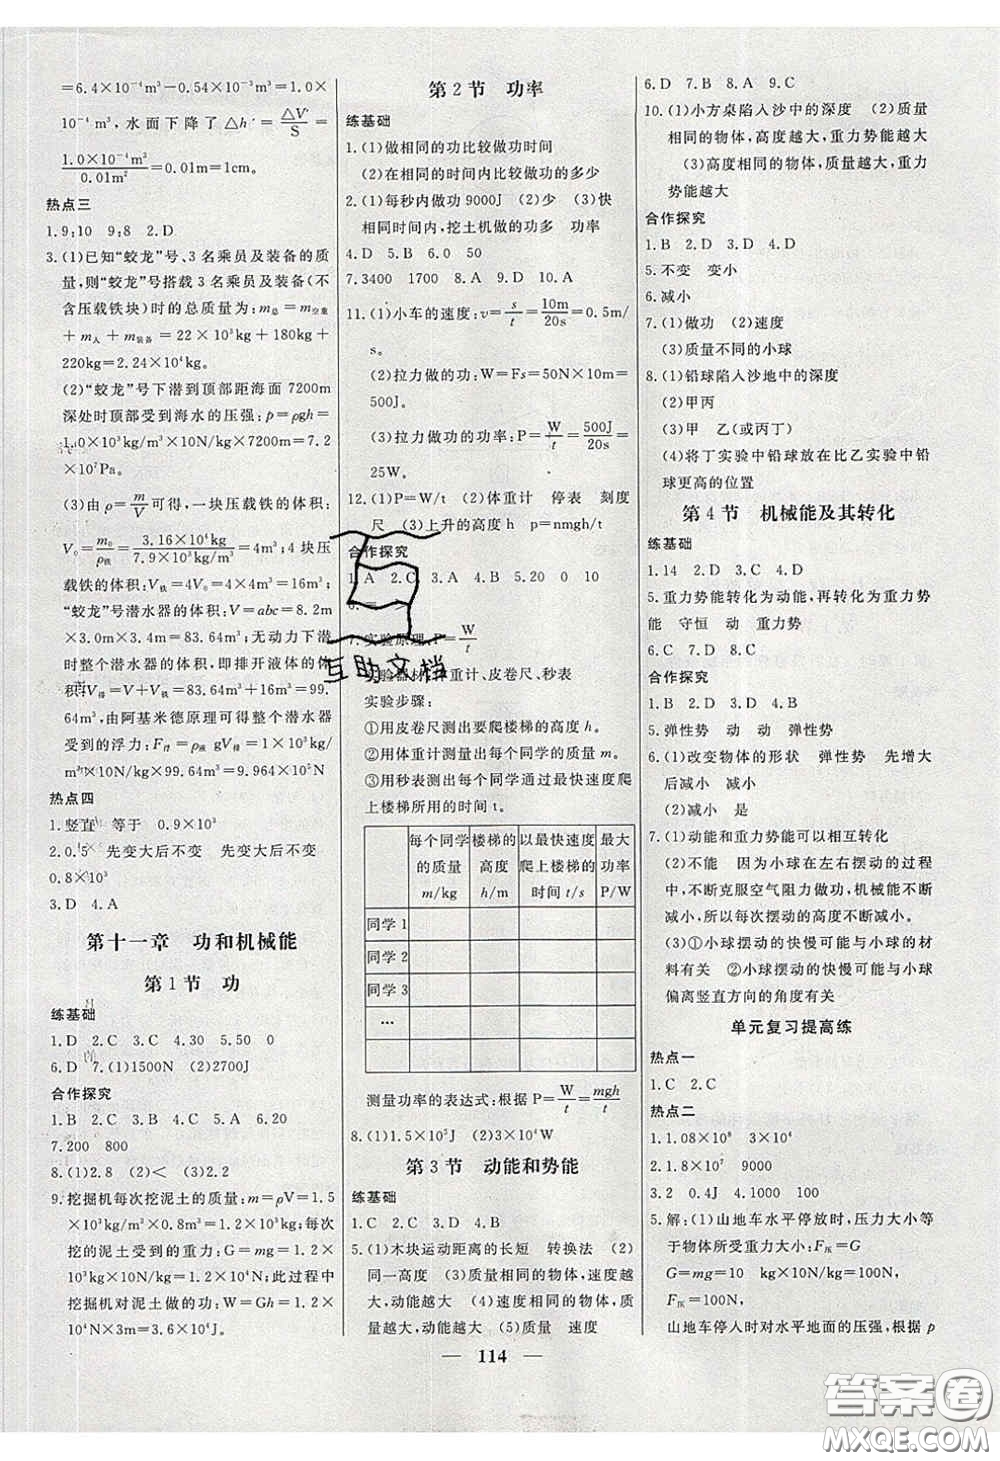 =6.4×10⁻⁴m³-0.54×10⁻⁴m³=1.0×
10⁻⁴m³,水面下降了△h′=△V′/S=
1.0×10⁻⁴m³/0.01m²=0.01m=1cm。
热点三
1.9:10 9:8 2.D
3.(1)已知“蛟龙”号、3名乘员及装备的质
量,则“蛟龙”号搭载3名乘员及装备(不
含压载铁块)时的总质量为:m总=m空重
+m人+m装备=22×10³kg+180kg+
220kg=2.24×10⁴kg;
(2)“蛟龙”号下潜到顶部距海面7200m
深处时顶部受到海水的压强:p=ρgh=
1.0×10³kg/m³×10N/kg×7200m=7.2
×10⁷Pa。
(3)由ρ=m/V可得,一块压载铁的体积:
V₀=m₀/ρ铁=3.16×10⁴kg/7.9×10³kg/m³=4m³;4块压
载铁的体积:V铁=4V₀=4×4m³=16m³;
“蛟龙”号潜水器的体积:V=abc=8.2m
×3.0m×3.4m=83.64m³;无动力下潜
时整个潜水器的体积,即排开液体的体
积:V排=V+V铁=83.64m³+16m³=99.
64m³,由阿基米德原理可得整个潜水器
受到的浮力:F浮=ρ液gV排=1.0×10³kg/
m³×10N/kg×99.64m³=9.964×10⁵N
热点四
1.竖直 等于 0.9×10³
2.0.5 先变大后不变 先变大后不变
0.8×10³
3.D 4.A
第十一章 功和机械能
第1节 功
练基础
1.D 2.C 3.C 4.30 5.50 0
6.D 7.(1)1500N (2)2700J
合作探究
1.B 2.C 3.D 4.C 5.A 6.20
7.200 800
8.(1)2.8 (2)< (3)2.2
9.挖掘机每次挖泥土的质量:m=ρV=1.5
×10³kg/m³×0.8m³=1.2×10³kg;每次
挖的泥土受到的重力:G=mg=1.2×
10³kg×10N/kg=1.2×10⁴N;此过程中
挖掘机对泥土做的功:W=Gh=1.2×
10⁴N×3m=3.6×10⁴J。
第2节 功率
练基础
1.(1)做相同的功比较做功时间
(2)在相同的时间内比较做功的多少
2.(1)每秒内做功9000J (2)少 (3)快
相同时间内,挖土机做的功多 功率
4.D 5.B 6.0 50
7.3400 1700 8.D 9.D 10.A
11.(1)小车的速度:v=s/t=10m/20s=0.5m/
s。
(2)拉力做的功:W=Fs=50N×10m=
500J。
(3)拉力做功的功率:P=W/t=500J/20s=
25W。
12.(1)P=W/t (2)体重计 停表 刻度
尺 (3)上升的高度h p=nmgh/t
合作探究
1.A 2.C 3.A 4.B 5.20 0 10
7.实验原理:P=W/t
实验器材:体重计、皮卷尺、秒表
实验步骤:
①用皮卷尺测出要爬楼梯的高度h。
②用体重计测量出每个同学的质量m。
③用秒表测出每个同学通过最快速度爬
上楼梯所用的时间t。
每个同学的质量m/kg 楼梯的高度h/m 以最快速度爬上楼梯的时间t/s 最大功率P/W
同学1
同学2
同学3
…
测量功率的表达式:根据P=W/t=mgh/t
8.(1)1.5×10⁵J (2)3×10⁴W
第3节 动能和势能
练基础
1.C 2.C 3.D 4.B
5.(1)木块运动距离的长短 转换法 (2)
同一高度 (3)质量相同的物体,速度越
大,动能越大 (4)速度相同的物体,质量
越大,动能越大 (5)质量 速度
6.D 7.B 8.A 9.C
10.(1)小方桌陷入沙中的深度 (2)质量
相同的物体,高度越大,重力势能越大
(3)高度相同的物体,质量越大,重力
势能越大
合作探究
1.B 2.D 3.D 4.D
5.不变 变小
6.减小
7.(1)做功 (2)速度
(3)质量不同的小球
8.(1)铅球陷入沙地中的深度
(2)甲丙
(3)甲 乙(或丙丁)
(4)将丁实验中铅球放在比乙实验中铅
球更高的位置
第4节 机械能及其转化
练基础
1.14 2.D 3.D 4.C
5.重力势能转化为动能,再转化为重力势
能 守恒 动 重力势
6.C 7.D 8.C
合作探究
1.B 2.A 3.D 4.B
5.弹性势 动 动 弹性势
6.(1)改变物体的形状 弹性势 先增大
后减小 减小
(2)减小 是
7.(1)动能和重力势能可以相互转化
(2)不能 因为小球在左右摆动的过程
中,不断克服空气阻力做功,机械能不断
减小,所以每次摆动的高度不断减小。
(3)①小球摆动的快慢可能与小球的材
料有关 ②小球摆动的快慢可能与小球
偏离竖直方向的角度有关
单元复习提高练
热点一
1.C 2.C
热点二
1.1.08×10⁸ 3×10⁴
2.1.5×10⁴ 9000
3.2 0.4J 4.1000 100
5.解:(1)山地车水平停放时,压力大小等
于物体所受重力大小:F压=G
G=mg=10 kg×10N/kg=100N,
F压=100N,
山地车停人时对水平地面的压强,根据p
114
互助文档
答案圈
MXQE.COM